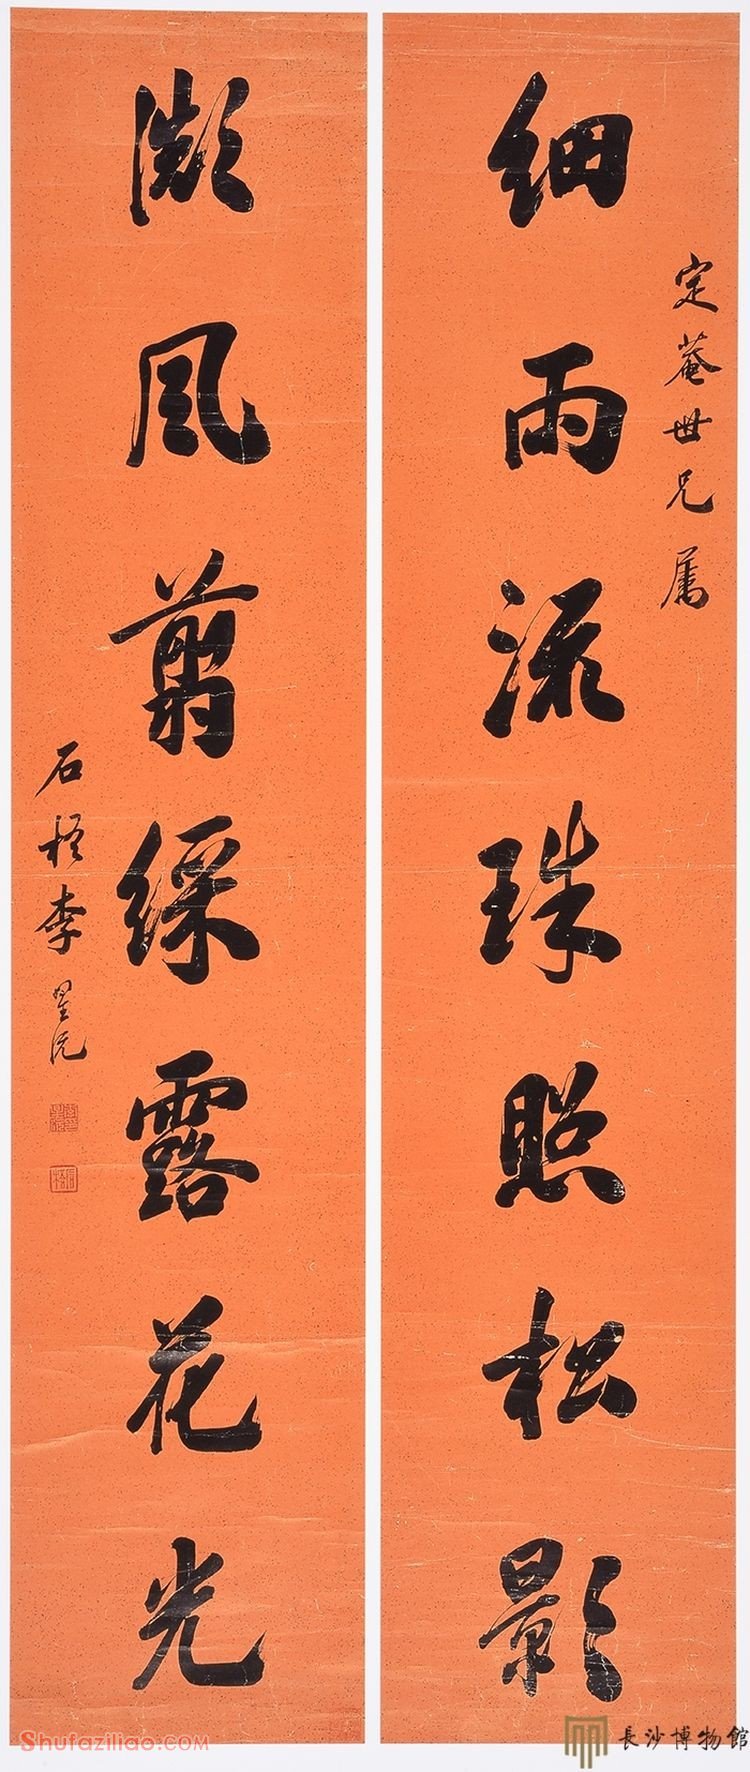 定菴世兄屬
細雨流珠照松影
微風翦綵露花光
石梧李星沅
長沙博物館
Shufaziliao.com